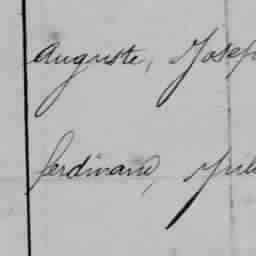 Auguste, Josep
ferdinand, Jule